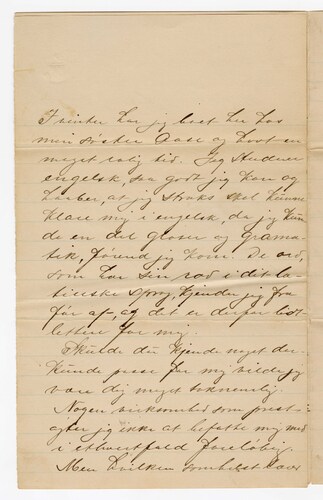 I vinter har jeg levet her hos
min søster Aase og havt en
meget rolig tid. Jeg studerer
engelsk, saa godt jeg kan og
haaber, at jeg straks skal kunne
klare mig i engelsk, da jeg kun
de en del gloser og grama-
tik, førend jeg kom. De ord,
som har sin rod i det la-
tinske sprog, kjender jeg fra
før af, og det er derfor lidt
lettere for mig.
Skulde du kjende noget der
kunde passe for mig vilde jeg
være dig meget taknemlig.
Nogen virksomhed som prest
agter jeg ikke at befatte mig med
i ethvertfald foreløbig.
Men hvilken somhelst